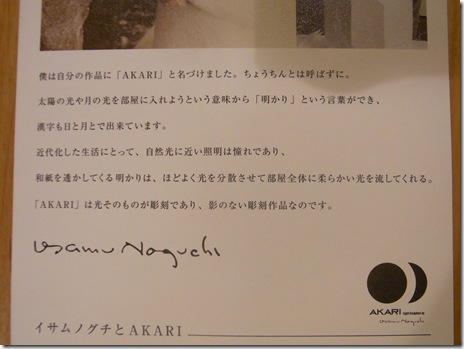 僕は自分の作品に「AKARI」と名づけました。ちょうちんとは呼ばずに。
太陽の光や月の光を部屋に入れようという意味から「明かり」という言葉ができ、
漢字も日と月とで出来ています。
近代化した生活にとって、自然光に近い照明は憧れであり、
和紙を透かしてくる明かりは、ほどよく光を分散させて部屋全体に柔らかい光を流してくれる。
「AKARI」は光そのものが彫刻であり、影のない彫刻作品なのです。
Isamu Noguchi
AKARI
Isamu Noguchi
イサムノグチとAKARI